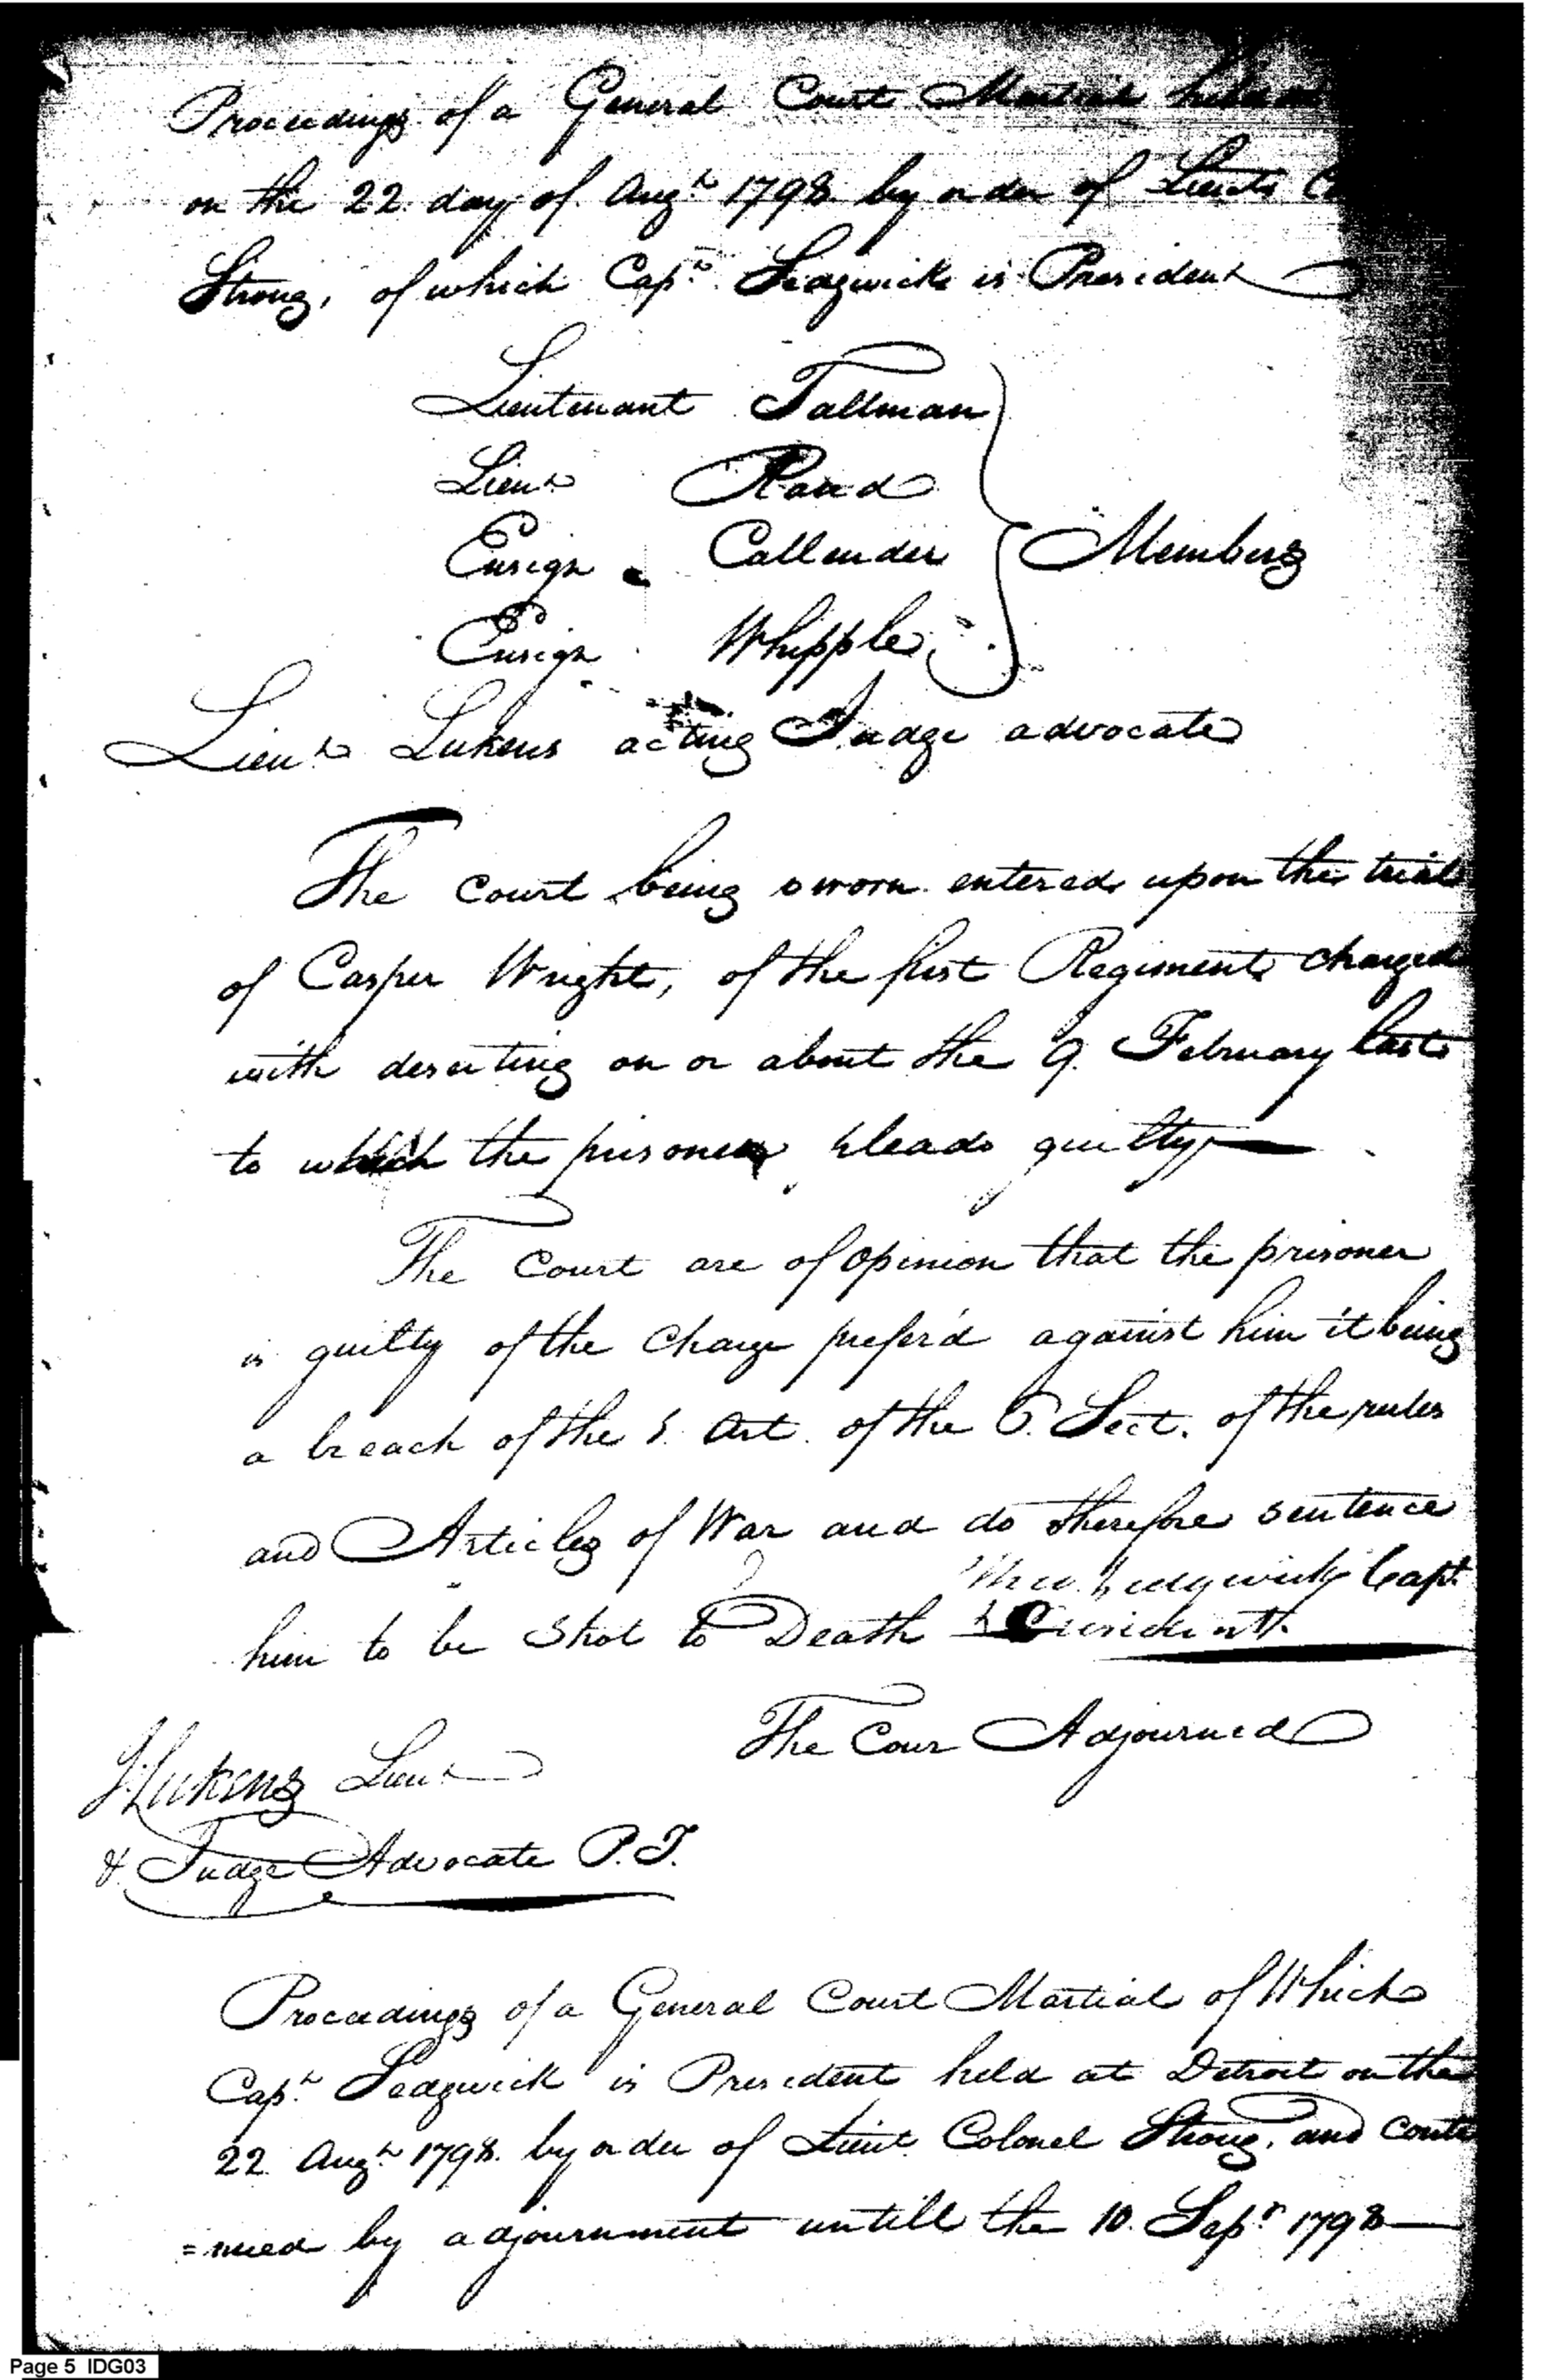 Proceedings of a General Court Martial held
on the 22 day of Augt 1798 by order of Lieut. Co
Strong, of which Capt. Sedgwick is President
Lieutenant Tallman
Lieut Rand
Ensign Callender Members
Ensign Whipple
Lieut Lukens acting Judge advocate
The Court being sworn entered upon the trial
of Casper Wright, of the first Regiment charged
with deserting on or about the 9. February last
to which the prisoner pleads guilty
The Court are of opinion that the prisoner
is guilty of the charge prefer'd against him it being
a breach of the 1. Art. of the 6. Sect. of the rules
and Articles of War and do therefore sentence
Sedgwick Capt.
him to be Shot to Death & President
The Cour Adjourned
Lukens Lieut
& Judge Advocate P. T.
Proceedings of a General Court Martial of Which
Capt. Sedgwick is President held at Detroit on the
22. Augt 1798. by order of Lieut. Colonel Strong, and conti
=nued by adjournment untill the 10. Sepr 1798
Page 5 IDG03